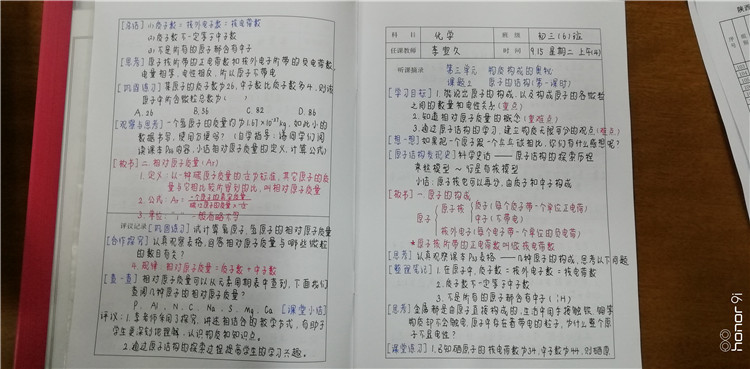 科目 化学 班级 初三(6)班
任课教师 李罡久 时间 9.15 星期二 上午(4)
听课摘录
第三单元 物质构成的奥秘
课题2 原子的结构(第一课时)
[学习目标] 1.能说出原子的构成,以及构成原子的各微粒
之间的数量和电性关系(重点)
2.知道相对原子质量的概念(重难点)
3.通过原子结构的学习,建立物质无限可分的观点(难点)
[想一想] 如果把一个原子跟一个乒乓球相比,你们有什么感想呢?
[原子结构发现史] 科学史话——原子结构的探索历程
枣糕模型 ~ 行星有核模型
小结:原子核它可以再分,由质子和中子构成
[板书] 一.原子的构成
原子 原子核 质子(每个质子带一个单位正电荷)
中子(不带电)
核外电子(每个电子带一个单位的负电荷)
★原子核所带的正电荷数叫做核电荷数
[思考] 认真观察课本P54表格——几种原子的构成,思考以下问题
[整理笔记] 1.在原子中,质子数=核外电子数=核电荷数
2.质子数不一定等于中子数
3.不是所有的原子都含有中子(H)
[思考] 金属都是由原子直接构成的,生活中用手接触铁、铜等
物质却不会触电,原子中存在着带电的粒子,为什么整个原
子不显电性?
[课堂练习] 1.已知硒原子的核电荷数为34,中子数为44,则硒原
[总结] (1)质子数=核外电子数=核电荷数
(2)质子数不一定等于中子数
(3)不是所有的原子都含有中子
[思考] 原子核所带的正电荷数和核外电子所带的负电荷数,
电量相等,电性相反,所以原子不带电
[巩固练习] 某原子的质子数为26,中子数比质子数多4,则该
原子中所含微粒总数为( )
A.26 B.36 C.82 D.86
[观察与思考] 一个氢原子的质量约为1.67×10⁻²⁷kg,如此小的
数据书写,使用方便吗?(自学指导:请同学们阅
读课本P56内容,小结相对原子质量的定义、计算公式)
[板书] 二.相对原子质量(Ar)
1.定义:以一种碳原子质量的1/12为标准,其它原子的质
量与它相比较所得到的比,叫相对原子质量
2.公式:Ar=一个原子的真实质量/碳12原子的质量×1/12
3.单位:“1”,一般省略不写
评议记录 [巩固练习] 试计算氢原子、氧原子的相对原子质量
[合作探究] 认真观察表格,回答相对原子质量与哪些微粒
的数目有关?
4.规律:相对原子质量=质子数+中子数
[查一查] 相对原子质量可以从元素周期表中查到,下面我们
查阅几种原子的相对原子质量?
P、Al、N、C、Na、S、Mg、Ca [课堂小结]
评议:1.李老师采用了探究、讲述相结合的教学方式,有助于
学生更深刻地理解、认识物质和知识点。
2.通过原子结构的探索过程提高学生的学习兴趣。
序号
honor 9i